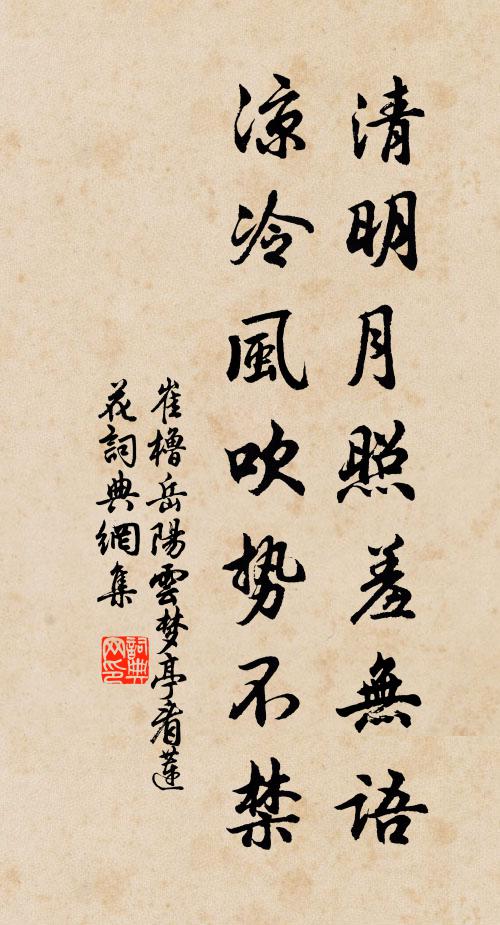 清明月照羞無語
凉冷風吹勢不禁
崔櫓岳陽雲梦亭看蓮
花詞典網集
詞典网印